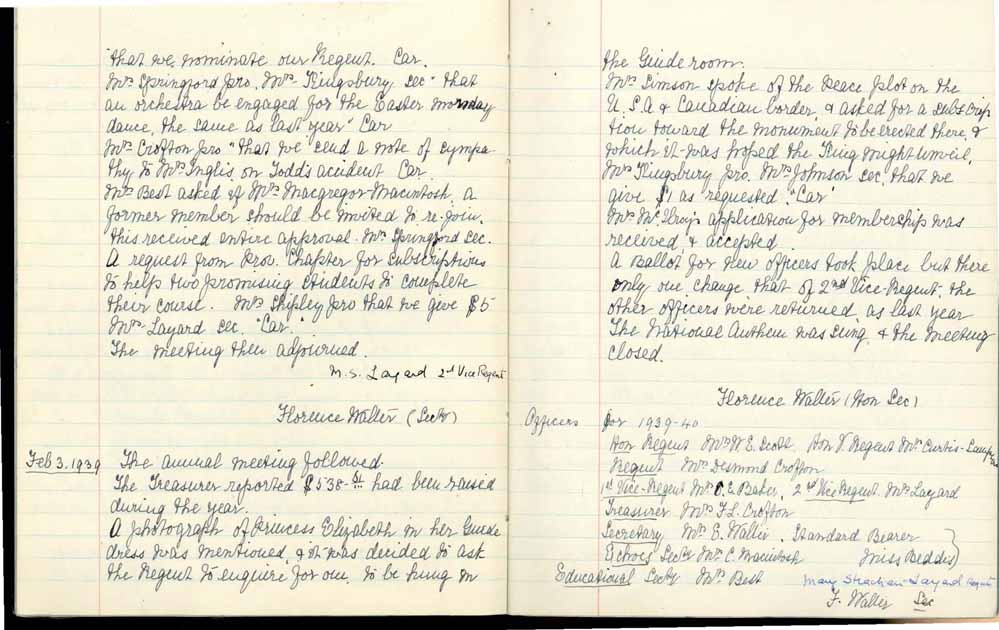 that we nominate our Regent. Car.
Mrs Springford pro. Mrs Kingsbury sec "that
an orchestra be engaged for the Easter monday
dance, the same as last year" Car
Mrs Crofton pro "that we send a note of sympa
thy to Mrs Inglis, on Todd's acident Car.
Mrs Best asked if Mrs Macgregor-Macintosh, a
former member should be invited to re-join.
this received entire approval. Mrs Springford sec.
A request from Prov. Chapter for subscriptions
to help two promising students to complete
their course. Mrs Shipley pro that we give $5
Mrs Layard sec. "Car."
The meeting then adjourned.
M. S. Layard 2nd Vice Regent
Florence Walter (Secty)
Feb 3. 1939 The annual meeting followed.
The Treasurer reported $538-51 had been raised
during the year.
A photograph of Princess Elizabeth in her Guide
dress was mentioned, & it was decided to ask
the Regent to enquire for one, to be hung in
the Guide room.
Mrs Simson spoke of the Peace plot on the
U.S.A & Canadian border, & asked for a subscrip
tion toward the monument to be erected there, &
which it was hoped the King might unveil,
Mrs Kingsbury pro. Mrs Johnson sec, that we
give $1 as requested. "Car"
Mrs McIlroy's application for membership was
received, & accepted.
A Ballot for new officers took place but there
only one change that of 2nd Vice-Regent, the
other officers were returned as last year
The National Anthem was sung & the meeting
closed.
Florence Walter (Hon Sec)
Officers for 1939-40
Hon Regent Mrs W. E. Scott Hon V. Regent Mrs Curtis-Lampson
Regent Mrs Desmond Crofton
1st Vice-Regent Mrs C. E. Baker, 2nd Vice Regent. Mrs Layard
Treasurer Mrs F. L. Crofton
Secretary Mrs E. Walter. Standard Bearer
Echoes Secty Mrs C. Macintosh Miss Beddis
Educational Secty Mrs Best
Mary Strachan-Layard Regent
F. Walter Sec